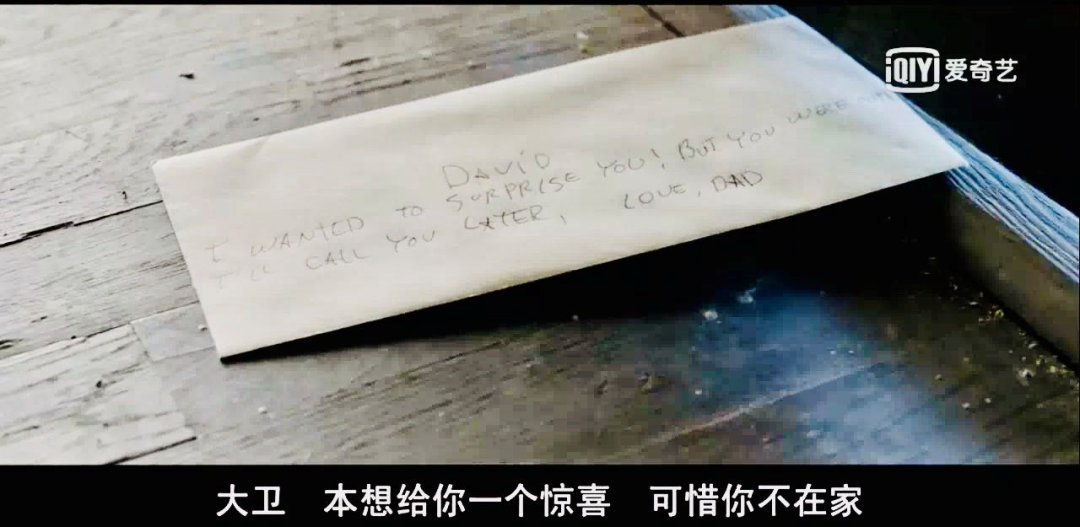 iQIY 爱奇艺
DAViD
I WANTED TO SURPRISE YOU! BUT YOU WERE
I'LL CALL YOU LATER, LOVE, DAD
大卫 本想给你一个惊喜 可惜你不在家